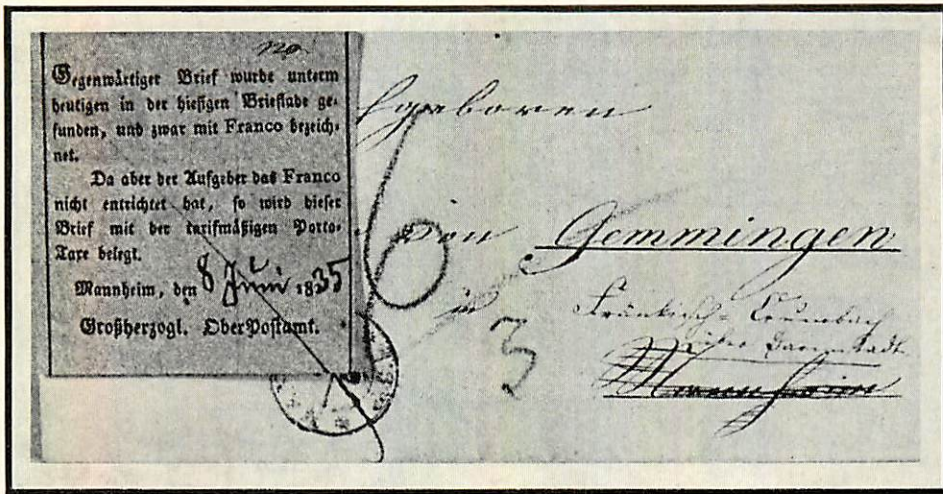 no
Gegenwärtiger Brief wurde unterm
heutigen in der hiesigen Brieflade ge-
funden, und zwar mit Franco bezeich-
net.
Da aber der Aufgeber das Franco
nicht entrichtet hat, so wird dieser
Brief mit der tarifmäßigen Porto-
Taxe belegt.
Mannheim, den 8 Juni 1835
Großherzogl. OberPostamt.
hgeboren
6
von Gemmingen
in
3
Fränkisch-Crumbach
über Darmstadt
Mannheim